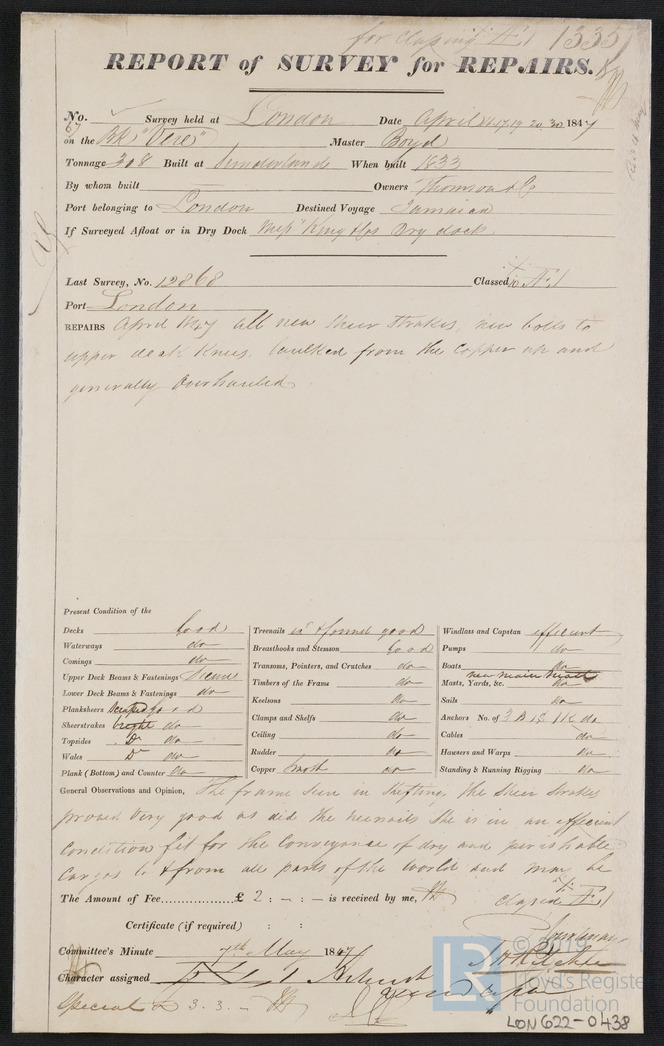 for Classing Æ 1 1335
REPORT of SURVEY for REPAIRS.
No. Survey held at London Date April 1847
67 on the Bk "Vere" Master Boyd
Tonnage 308 Built at Sunderland When built 1833
By whom built Owners Thomson & Co
Port belonging to London Destined Voyage Jamaica
If Surveyed Afloat or in Dry Dock King Dry dock
Last Survey, No. 12868 Classed Æ 1
Port London
REPAIRS April 1847 all new Sheer Strakes, new bolts to
upper deck Knees, Caulked from the Copper up and
generally Overhauled
Present Condition of the
Decks Good Treenails good Windlass and Capstan efficient
Waterways do Breasthooks and Stemson Good Pumps do
Comings do Transoms, Pointers, and Crutches do Boats do
Upper Deck Beams & Fastenings Timbers of the Frame do Masts, Yards, &c. new main Mast do
Lower Deck Beams & Fastenings do Keelsons do Sails do
Planksheers scraped good Clamps and Shelfs do Anchors No. of 3 B 1 S 1 K do
Sheerstrakes bright do Ceiling do Cables do
Topsides Do do Rudder do Hawsers and Warps do
Wales Do do Copper do Standing & Running Rigging do
Plank (Bottom) and Counter do
General Observations and Opinion, The frame seen in shifting the Sheer Strakes
proved very good as did the treenails She is in an efficient
Condition fit for the Conveyance of dry and perishable
Cargos to & from all parts of the world and may be
The Amount of Fee £ 2 : - : - is received by me, classed Æ 1
Certificate (if required) : :
Committee's Minute 7th May 1847
Character assigned
Special £ 3. 3. -
© 2019
Lloyd's Register
Foundation
LR
LON622-0438